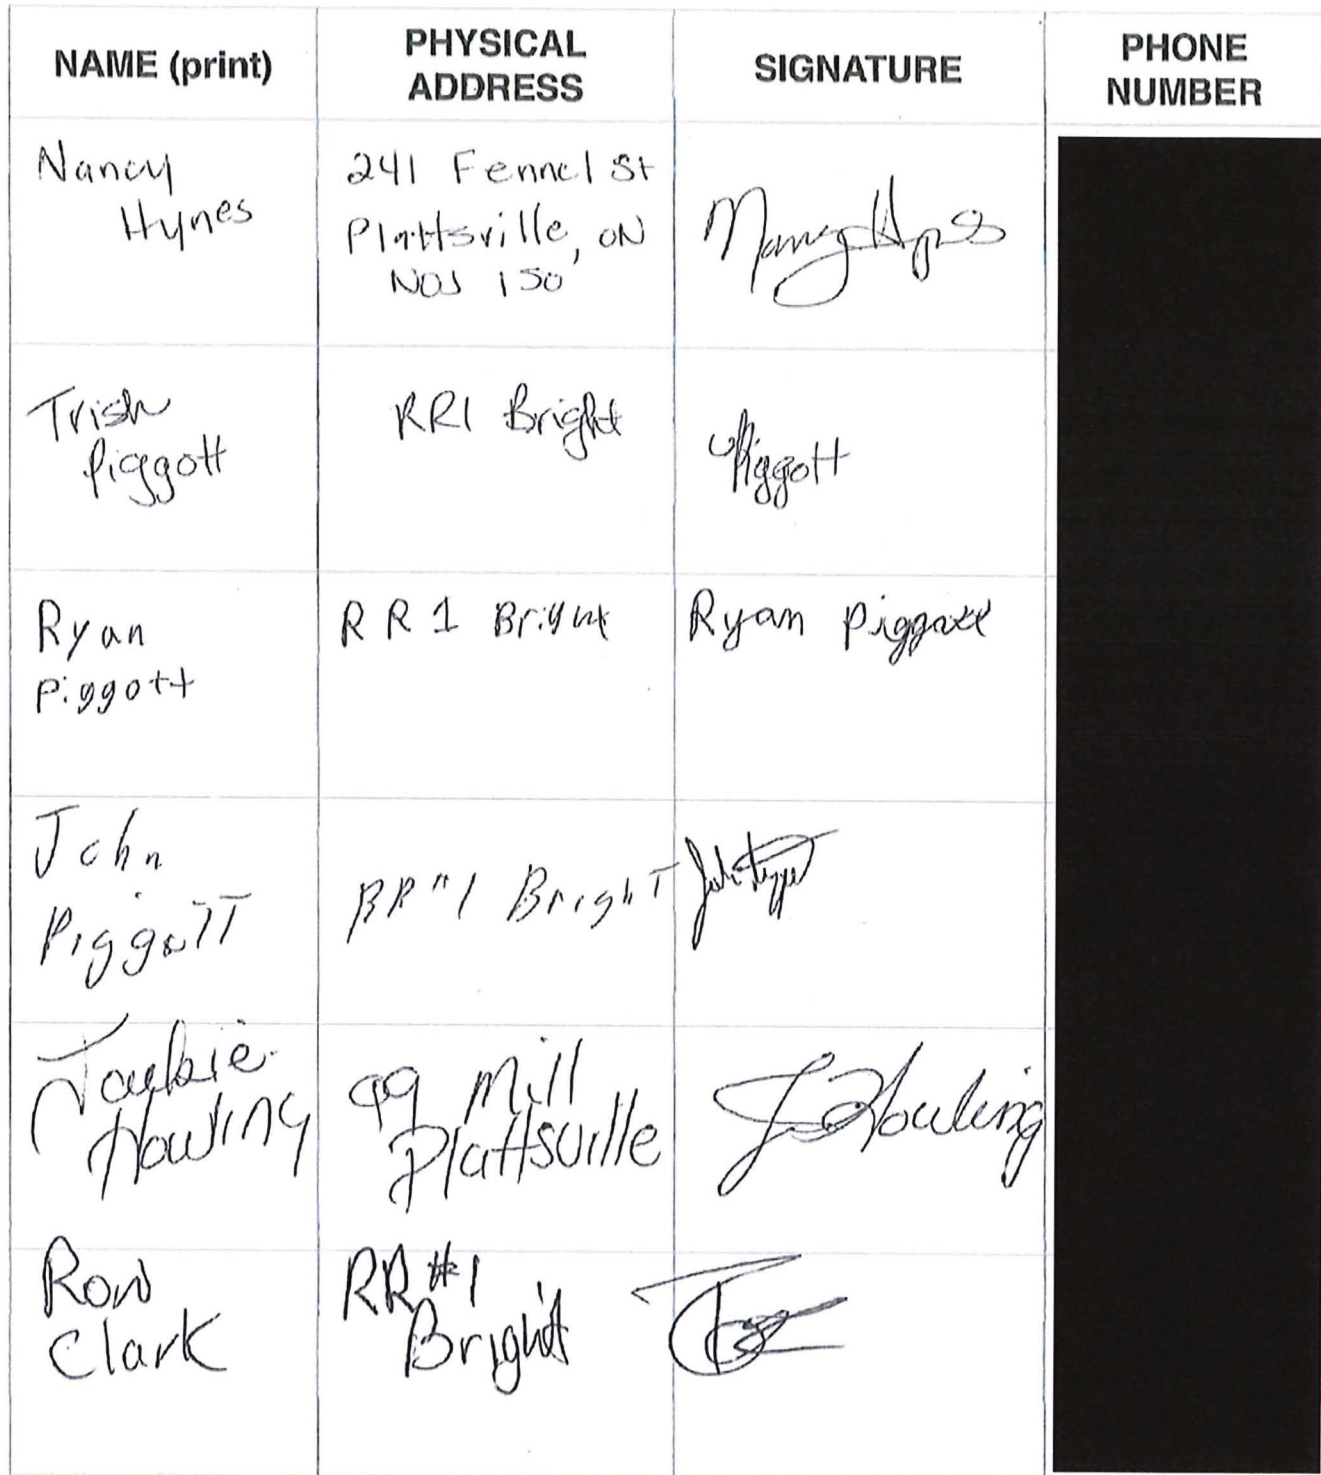 NAME (print)
PHYSICAL
ADDRESS
SIGNATURE
PHONE
NUMBER
Nancy
Hynes
241 Fennel St
Plattsville, ON
N0J 1S0
Nancy Hynes
Trish
Piggott
RR1 Bright
Piggott
Ryan
Piggott
RR1 Bright
Ryan Piggott
John
Piggott
RR#1 Bright
John Piggott
Jackie
Howling
99 Mill
Plattsville
J Howling
Ron
Clark
RR#1
Bright